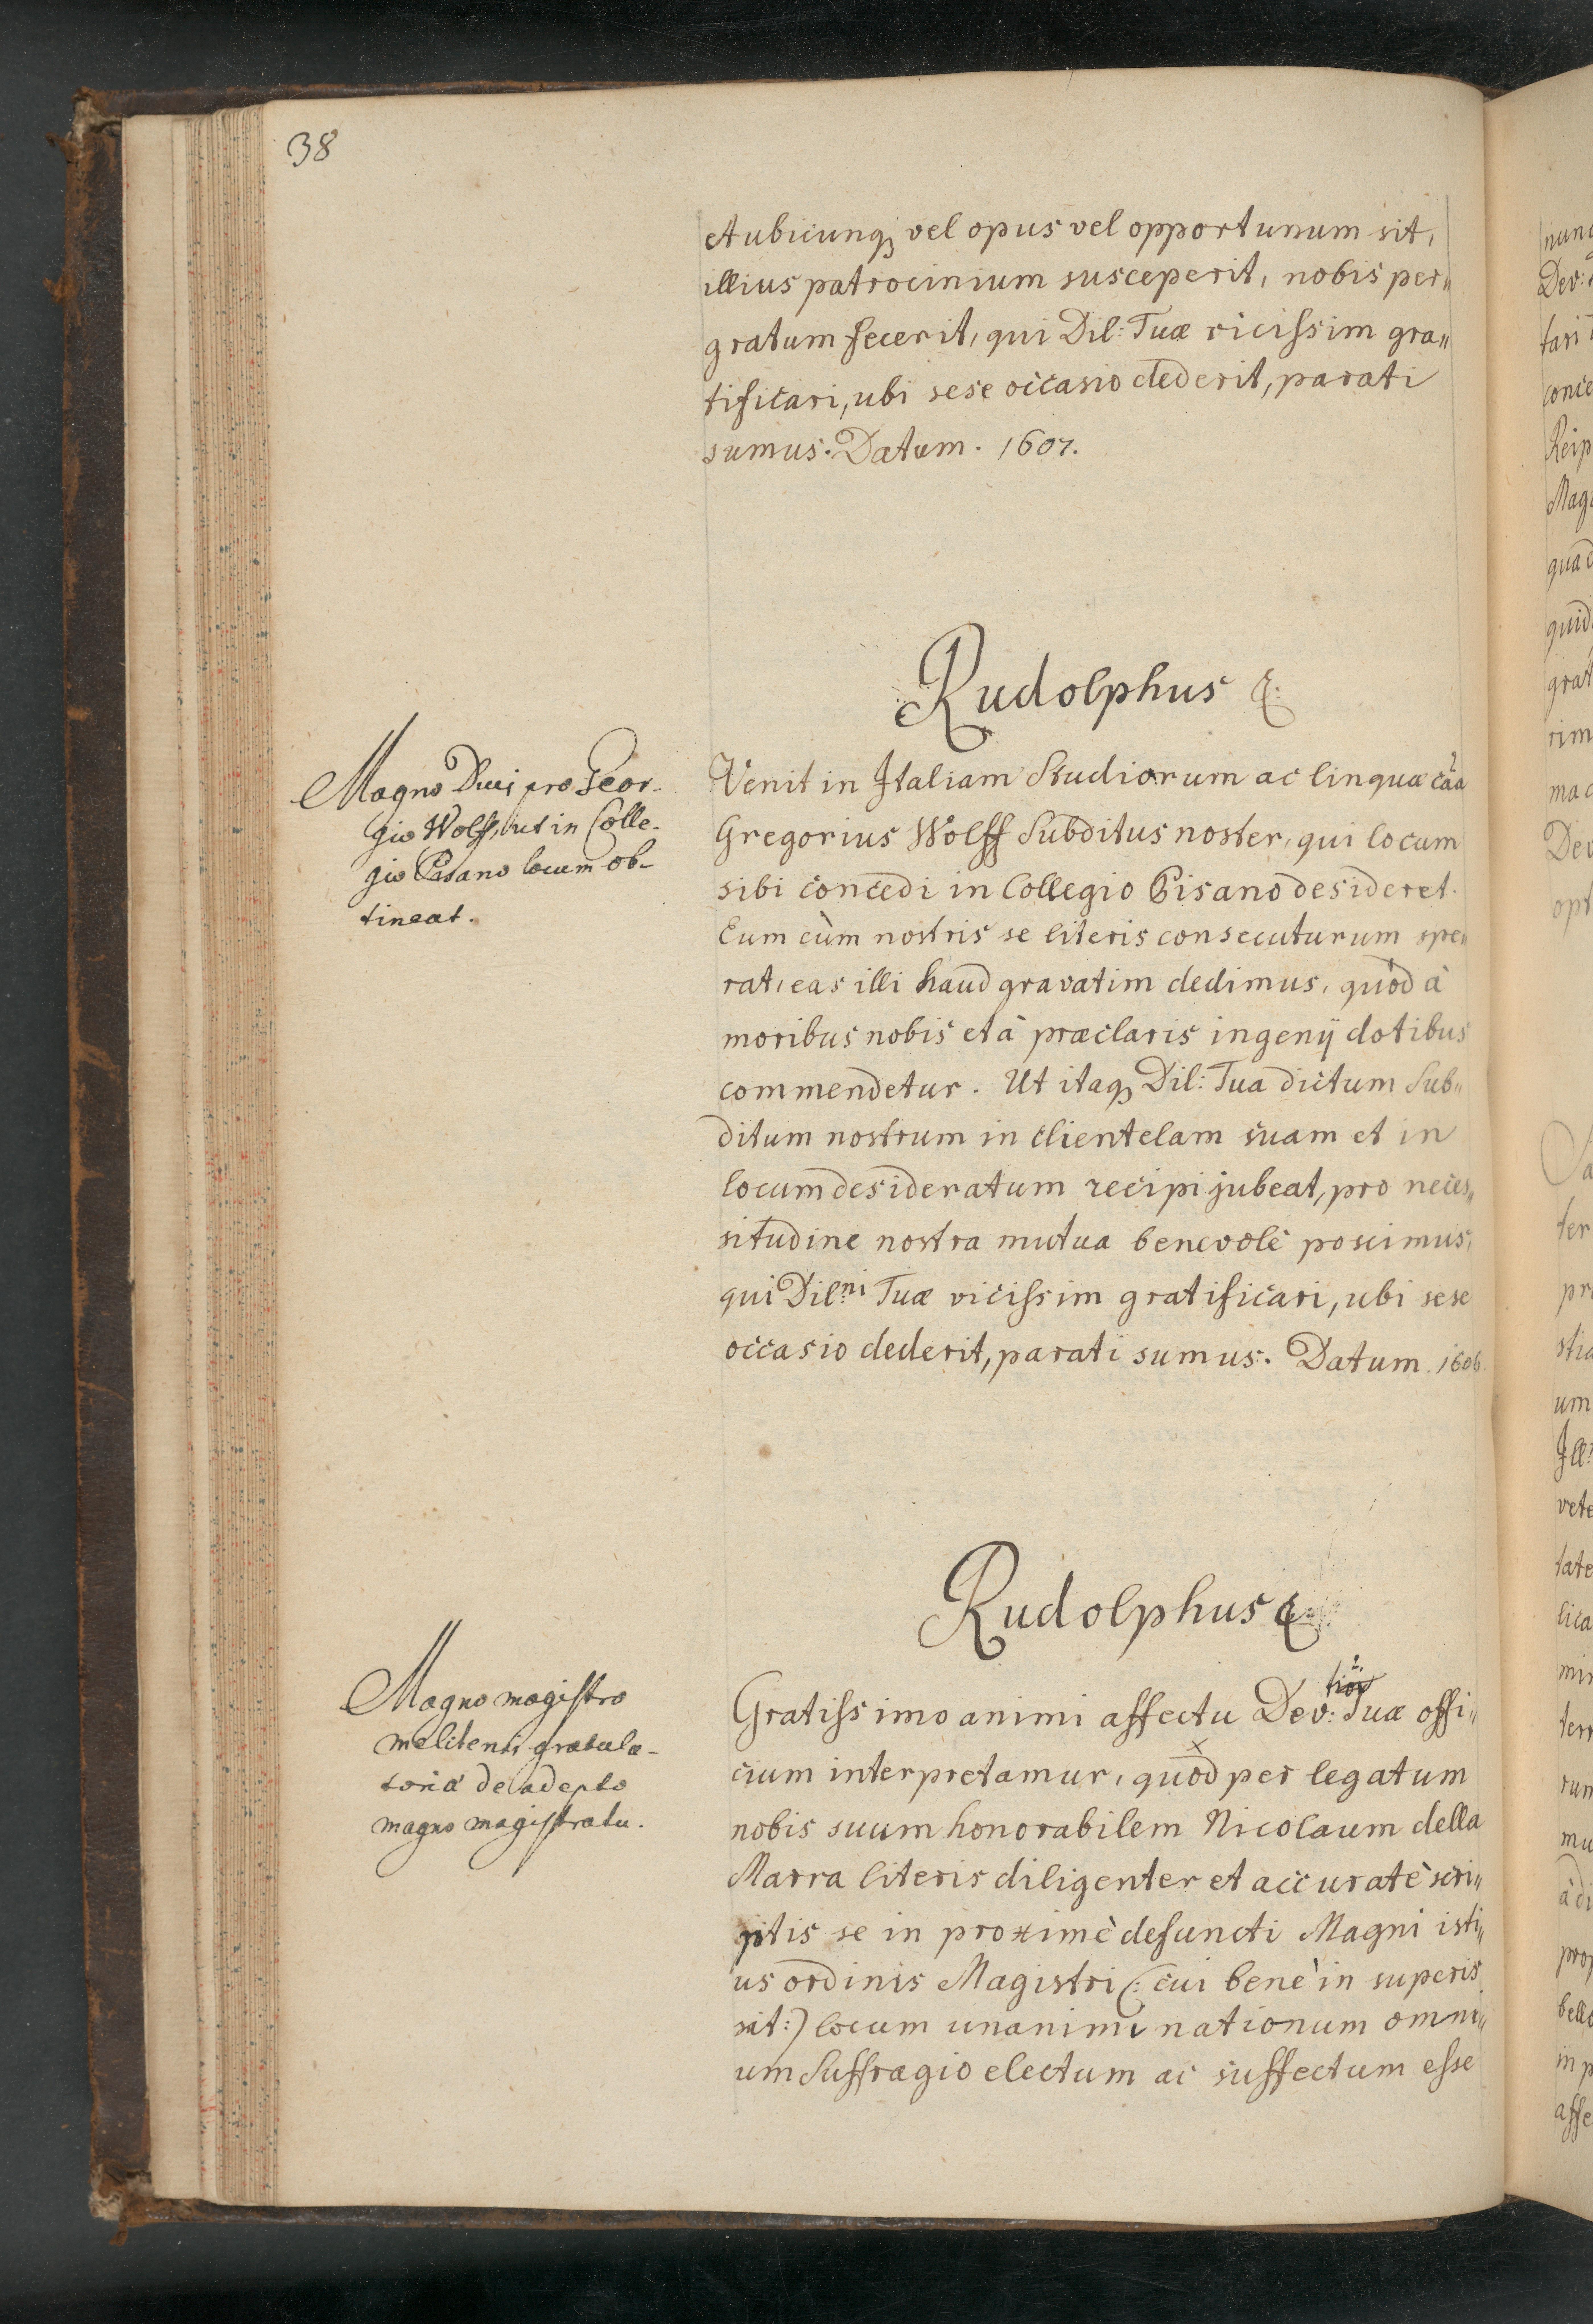 38
et ubicunq₃ vel opus vel opportunum sit,
illius patrocinium susceperit, nobis per„
gratum fecerit, qui Dil: Tuæ vicissim gra„
tificari, ubi sese occasio dederit, parati
sumus. Datum. 1607.
Rudolphus &.
Magno Duci pro Geor-
gio Wolff, ut in Colle-
gio Pisano locum ob-
tineat.
Venit in Italiam Studiorum ac linquæ cãa
Gregorius Wolff Subditus noster, qui locum
sibi concedi in Collegio Pisano desideret.
Eum cùm nostris se literis consecuturum spe„
rat, eas illi haud gravatim dedimus, quòd à
moribus nobis et à præclaris ingenij dotibus
commendetur. Ut itaq₃ Dil: Tua dictum Sub„
ditum nostrum in clientelam suam et in
locum desideratum recipi jubeat, pro neces„
situdine nostra mutua benevolè poscimus,
qui Dil.ni Tuæ vicissim gratificari, ubi sese
occasio dederit, parati sumus. Datum. 1606.
Rudolphus &.
Magno magistro
melitensi gratula-
toria de adepto
magno magistratu.
Gratissimo animi affectu Dev: Tuæ offi„
cium interpretamur, quod per legatum
nobis suum honorabilem Nicolaum della
Marra literis diligenter et accuratè scri„
ptis se in proximè defuncti Magni isti„
us ordinis Magistri (: cui benè in superis
sit:) locum unanimi nationum omni„
um Suffragio electum ac suffectum esse